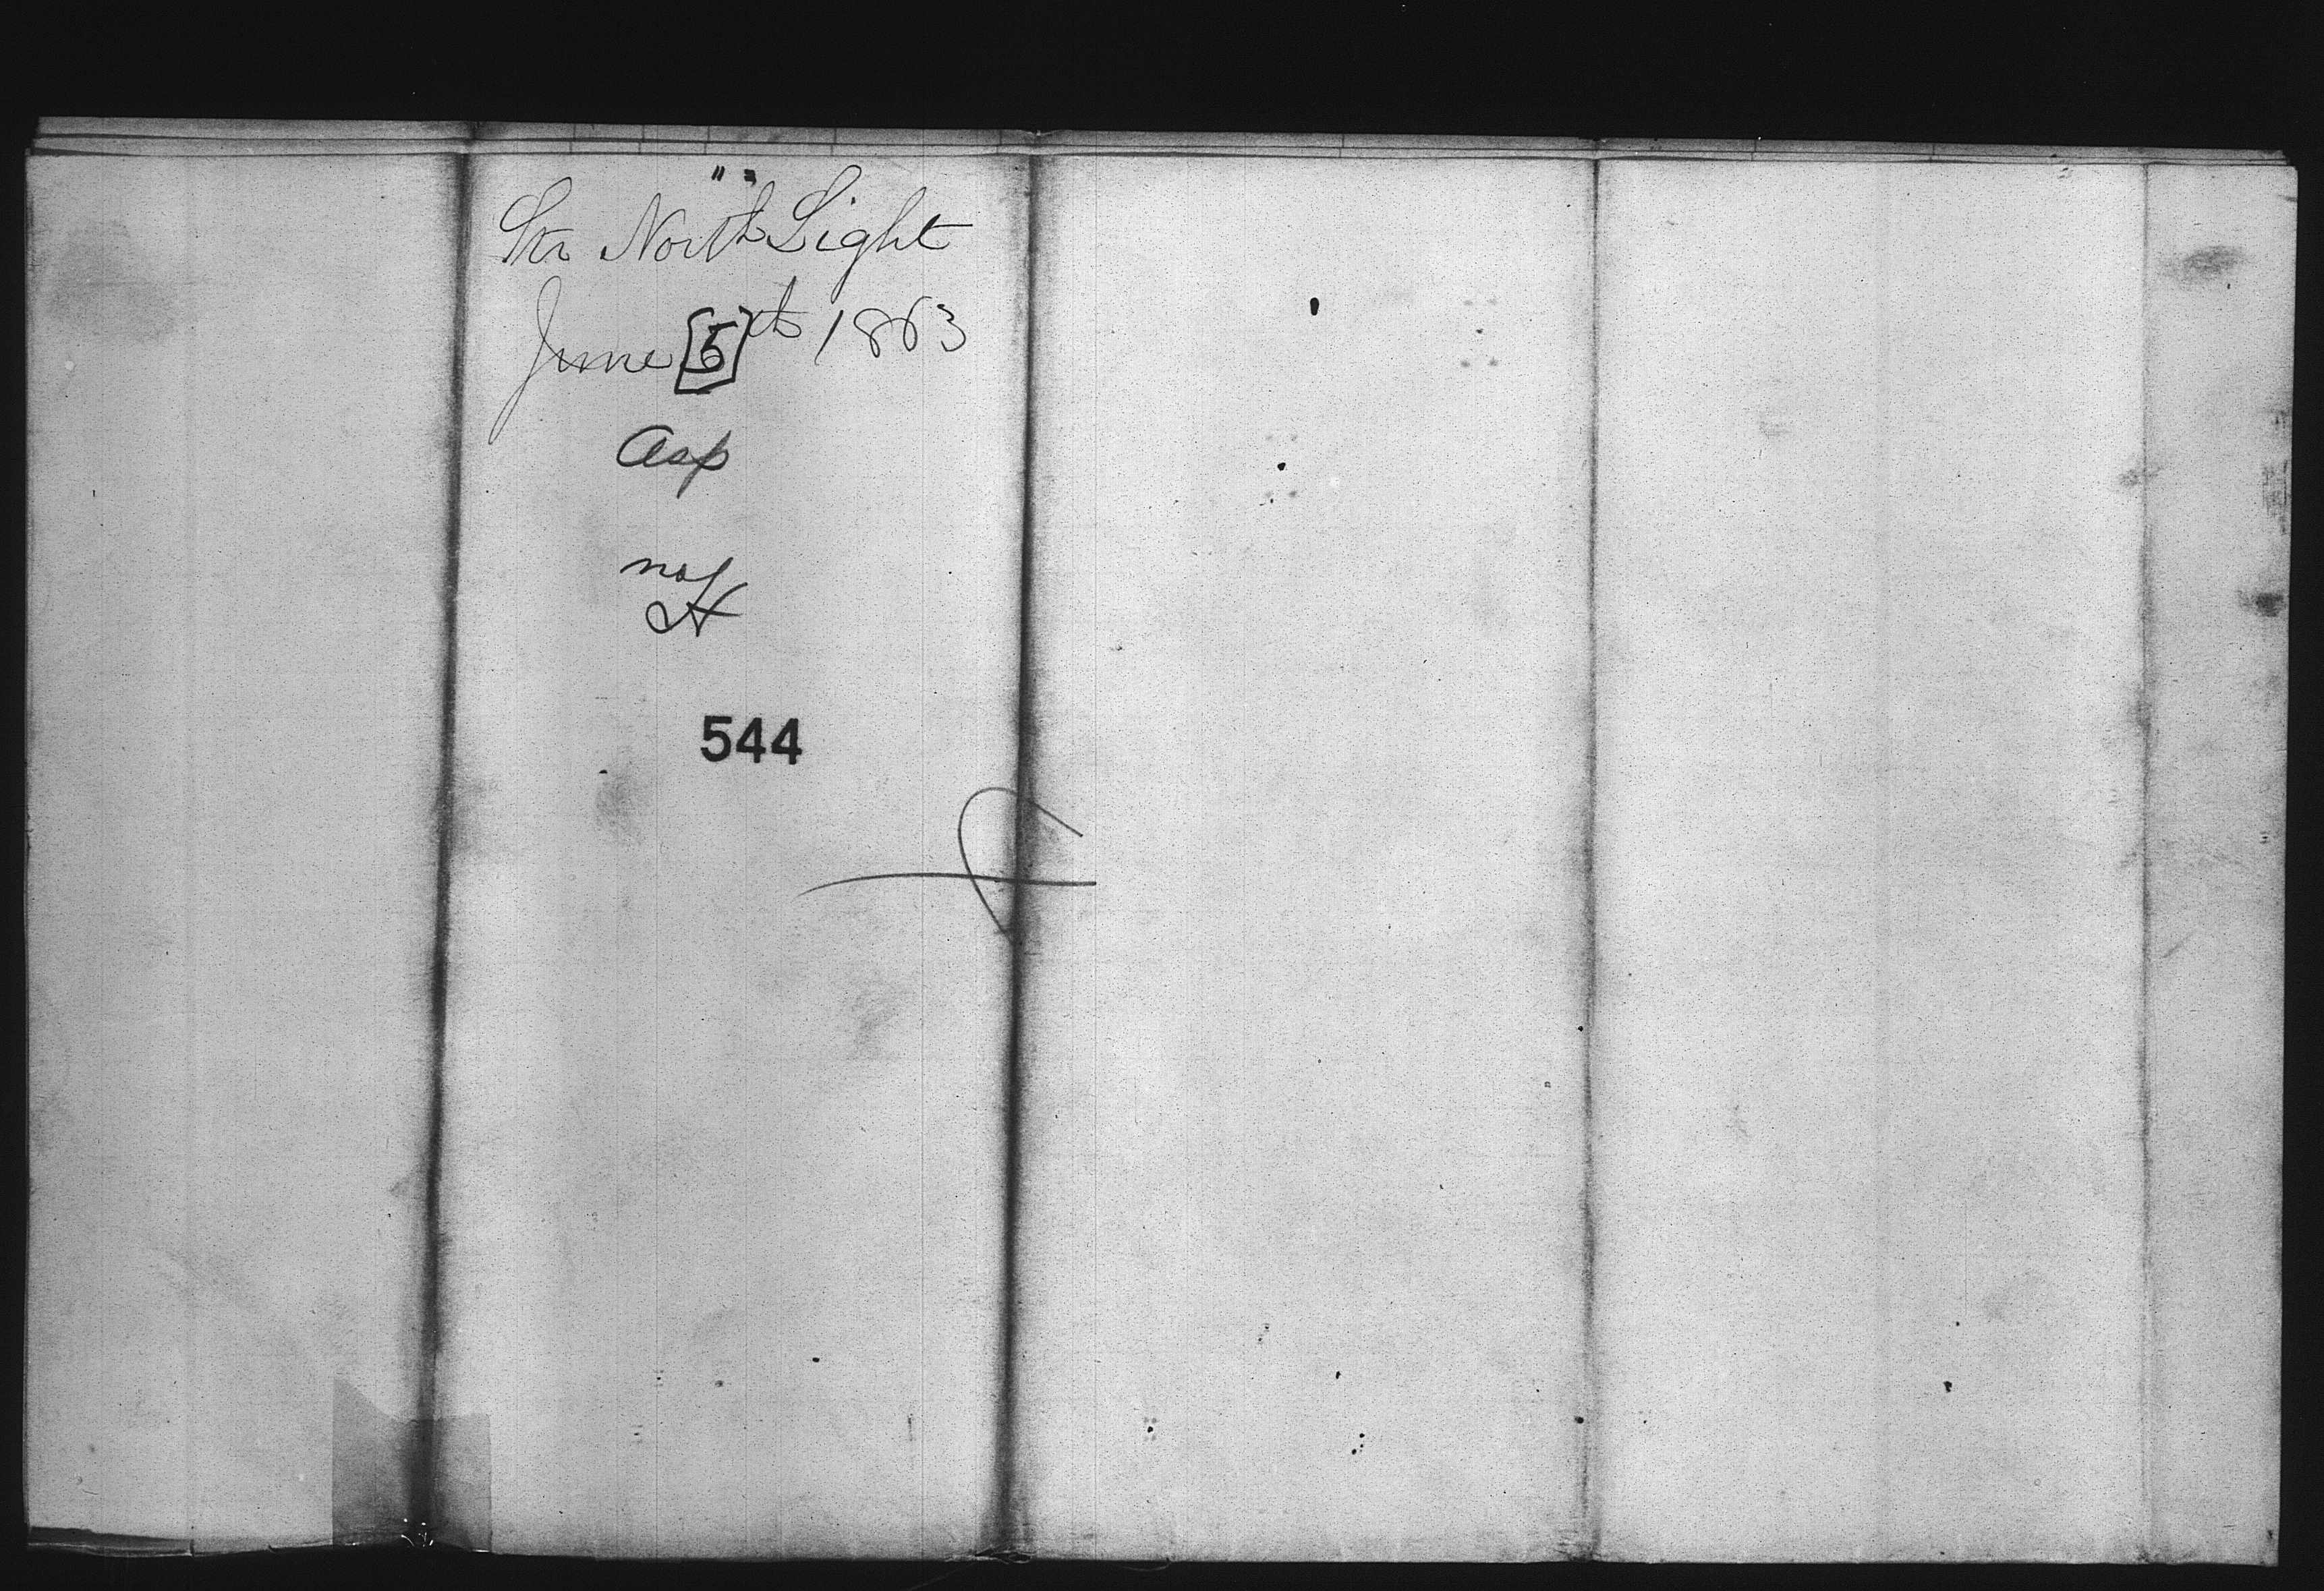 " "
Str North Light
June [5]th 1863
Asp
544